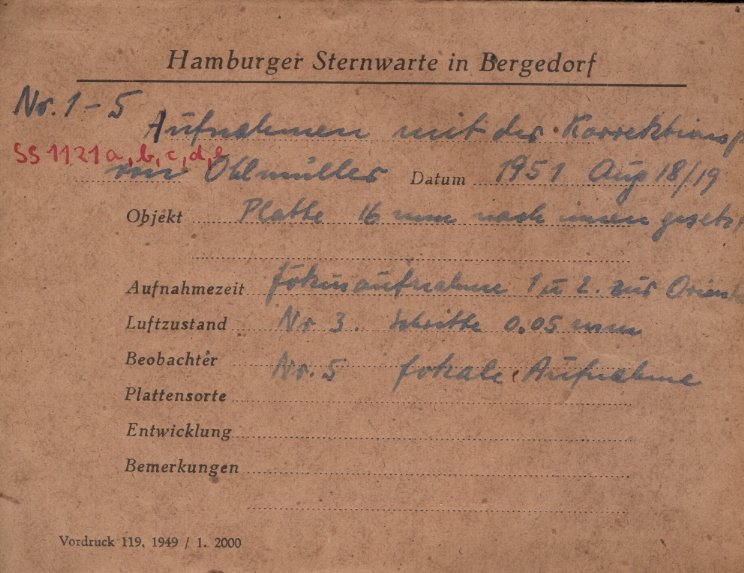 Hamburger Sternwarte in Bergedorf
Nr. 1-5 Aufnahmen mit der Korrektions
SS 1121 a, b, c, d, e
von Ohlmüller Datum 1951 Aug 18/19
Objekt Platte 16 mm nach innen gesetzt
Aufnahmezeit Fokusaufnahme 1 u 2. zur
Luftzustand Nr 3. Schritte 0.05 mm
Beobachter
Nr. 5 fokale Aufnahme
Plattensorte
Entwicklung
Bemerkungen
Vordruck 119. 1949 / 1. 2000